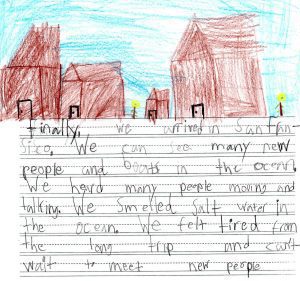 Finally, we arrived in San Fran-
sico. We can see many new
people and boats in the ocean.
We heard many people moving and
talking. We smelled salt water in
the ocean. We felt tired from
the long trip and can't
wait to meet new people